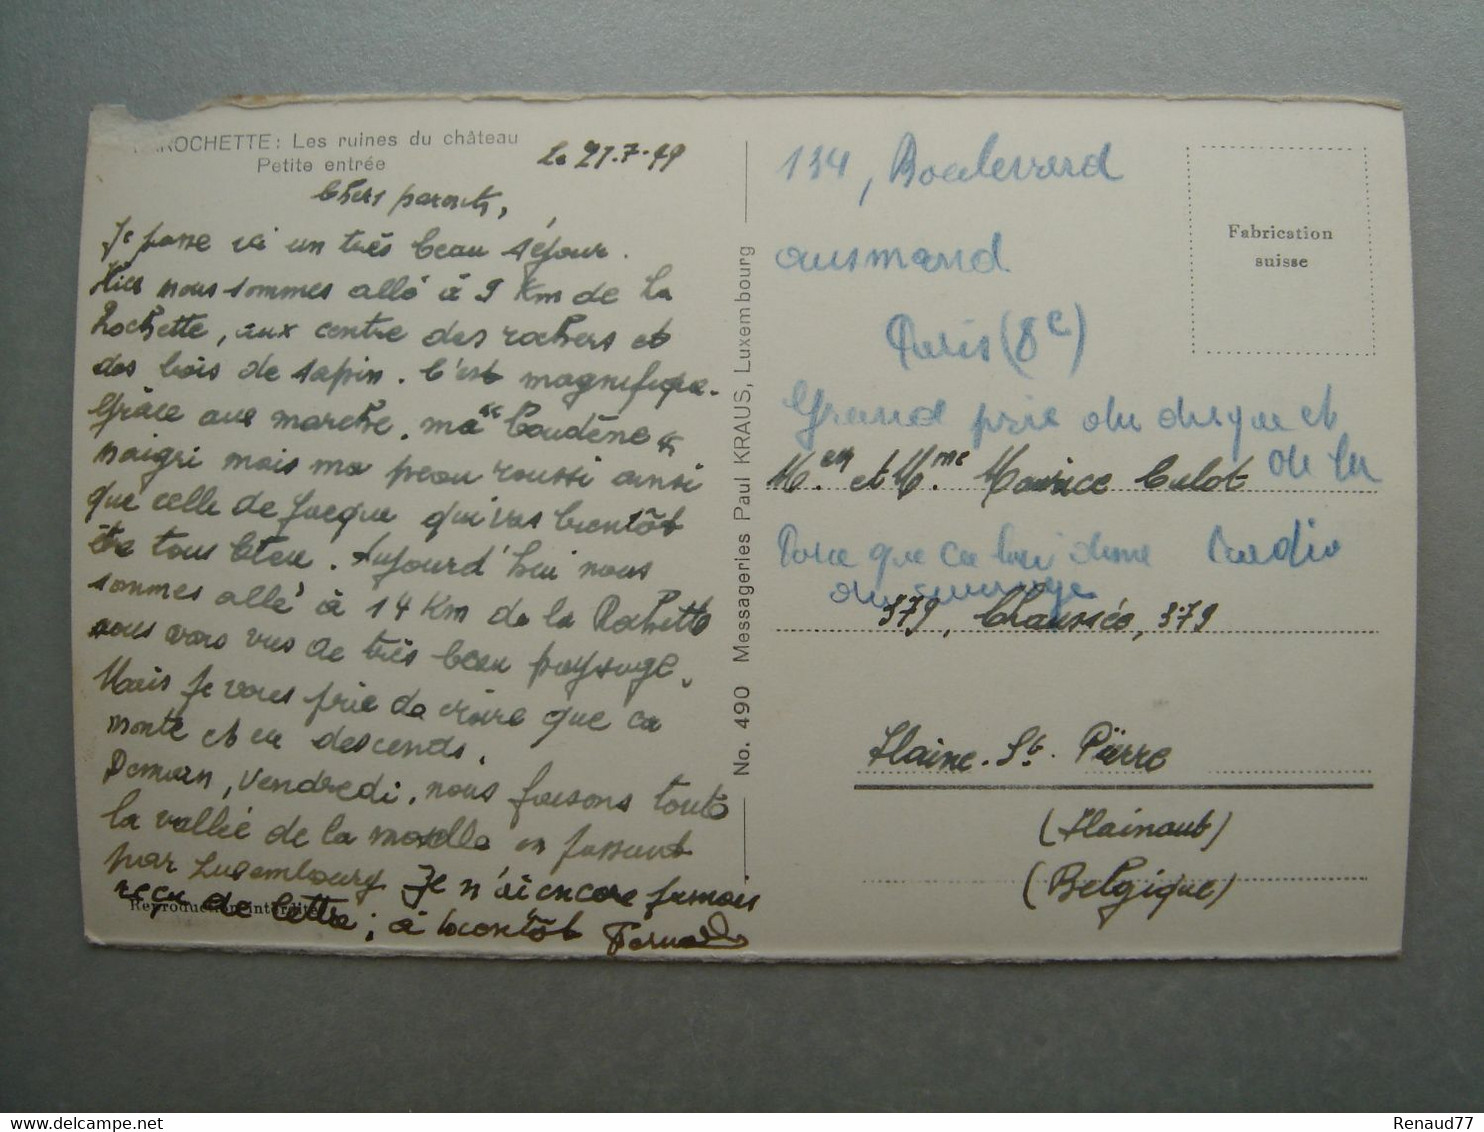 LAROCHETTE: Les ruines du château
Petite entrée
Le 21.7.49
Chers parents,
Je passe ici un très beau séjour.
Hier nous sommes allé à 9 Km de La
Rochette, aux centre des rochers et
des bois de sapin. C'est magnifique.
Grâce aux marche, ma "boudène"
maigri mais ma peau roussi ainsi
que celle de Jacque qui vas bientôt
être tous bleu. Aujourd'hui nous
sommes allé à 14 Km de la Rochette
nous vons vus de très beau paysage.
Mais je vous prie de croire que ca
monte et ca descends.
Demain, Vendredi, nous faisons toute
la vallée de la moselle en passant
par Luxembourg Je n'ai encore jamais
reçu de lettre; à bientôt Fernand
Reproduction interdite
No. 490 Messageries Paul KRAUS, Luxembourg
Fabrication
suisse
134, Boulevard
ausmand
Paris (8e)
Grand prix du disque et
de la
M.eur et M.me Maurice Culot
Parce que ca lui donne Radio
du courage
379, Chaussée, 379
Haine. St. Pierre
(Hainaut)
(Belgique)
Renaud77